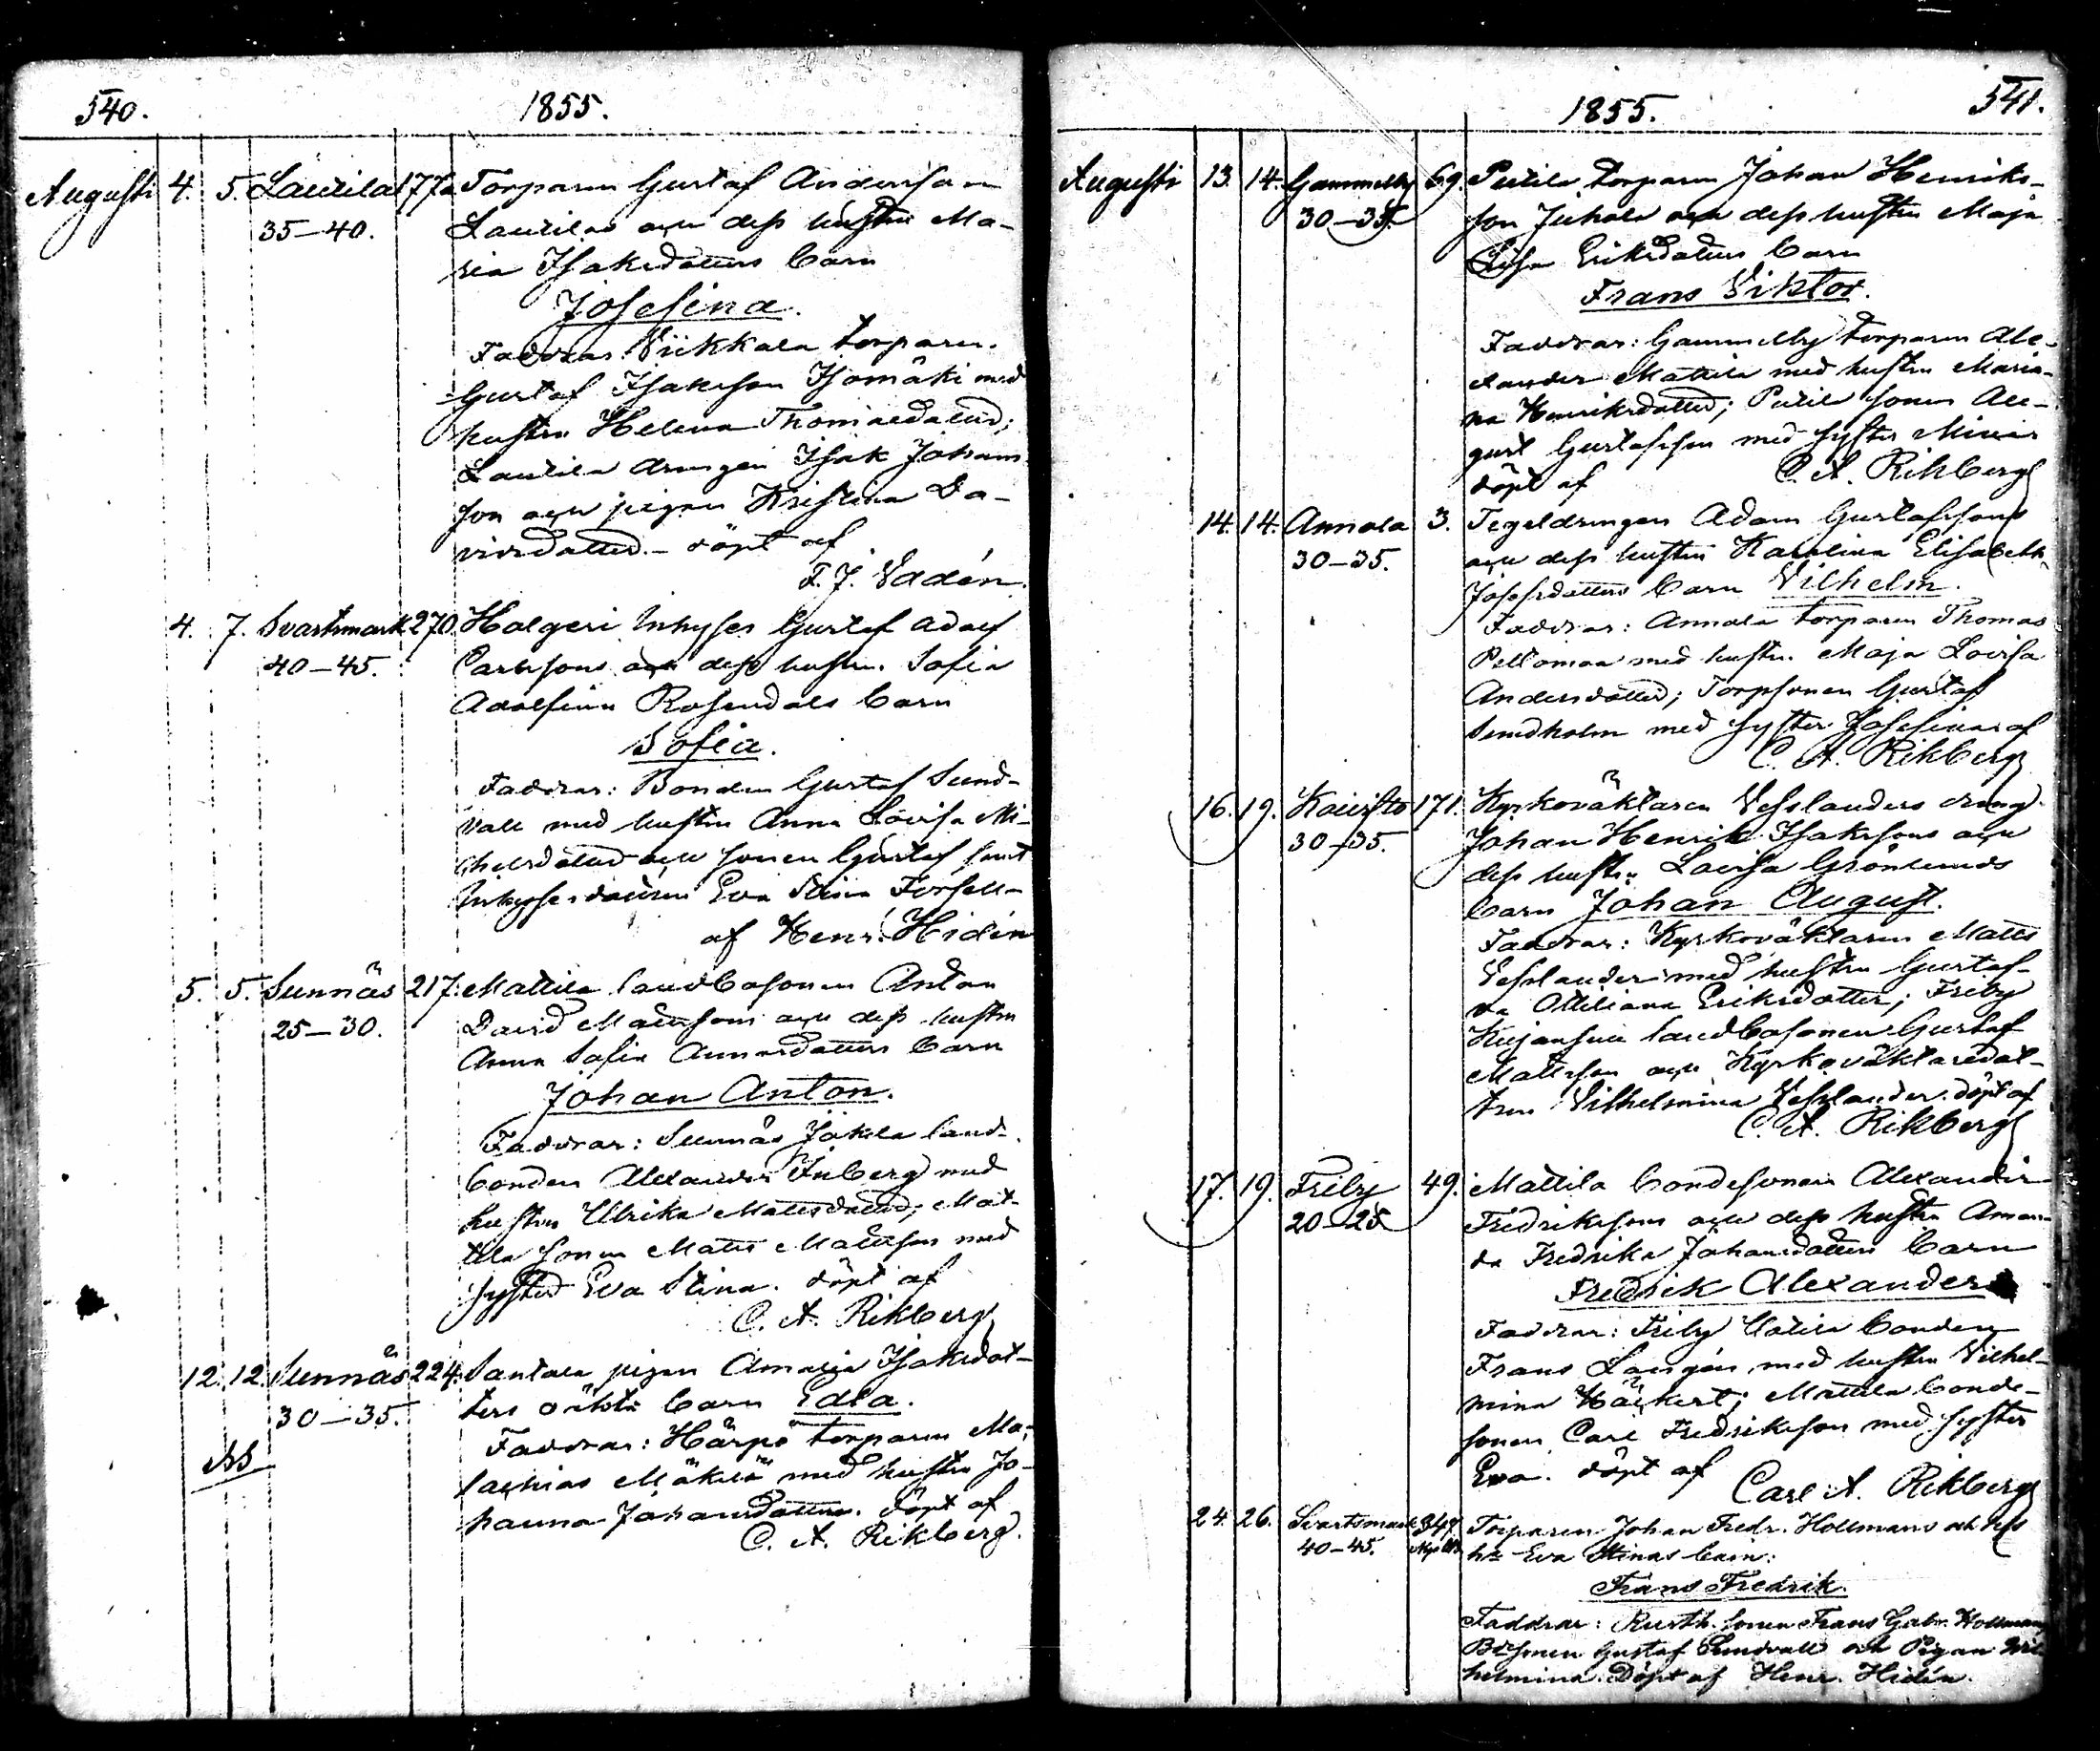 540.
1855.
Augusti 4. 5. Lautila 177a Torparen Gustaf Andersson
35–40. Lautilas och dess hustru Ma-
ria Isaksdotters barn
Josefina.
Faddrar: Viikkala torparen
Gustaf Isaksson Isomäki med
hustru Helena Thomasdotter;
Lautila drengen Isak Johans
son och pigan Kristina Da-
vidsdotter. – döpt af
F. J. Vadén.
4. 7. Svartsmark 270. Holgeri Inhyses Gustaf Adolf
40–45. Carlssons och dess hustru Sofia
Adolfina Rosendals barn
Sofia.
Faddrar: Bonden Gustaf Sund-
vall med hustru Anna Lovisa Mi-
chelsdotter och sonen Gustaf samt
Inhysesdottren Eva Stina Forsell –
af Henr. Hidén
5. 5. Sunnäs 217. Mattila landbosonen Anton
25–30. David Mattssons och dess hustru
Anna Sofia Annasdotters barn
Johan Anton.
Faddrar: Sunnäs Jåkela land-
bonden Alexander Inberg med
hustru Ulrika Mattsdotter; Mat-
tila sonen Matts Mattsson med
syster Eva Stina. döpt af
C. A. Rikberg
12. 12. Sunnäs 224. Santala pigan Amalia Isaksdot-
30–35. ters oäkta barn Edla.
Faddrar: Härpö torparen Ma-
lachias Mäkelä med hustru Jo-
hanna Johansdotter. döpt af
C. A. Rikberg.
541.
1855.
Augusti 13. 14. Gammelby 69. Putila torparen Johan Henriks-
30–35. son Juhola och dess hustru Maja
Lisa Eriksdotters barn
Frans Viktor.
Faddrar: Gammelby torparen Ale-
xander Mattila med hustru Maria-
na Henriksdotter; Putila sonen Au-
gust Gustafsson med syster Minna
döpt af C. A. Rikberg
14. 14. Annala 3. Tegeldrengen Adam Gustafssons
30–35. och dess hustru Karolina Elisabeth
Josefsdotters barn Vilhelm.
Faddrar: Annala torparen Thomas
Peltomaa med hustru Maja Lovisa
Andersdotter; Torpsonen Gustaf
Sundholm med syster Josefina af
C. A. Rikberg
16. 19. Koivisto 171. Kyrkoväktaren Vesslanders dreng
30–35. Johan Henrik Isakssons och
dess hustru Lovisa Grönlunds
barn Johan August.
Faddrar: Kyrkoväktaren Matts
Vesslander med hustru Gustaf-
va Ottiliana Eriksdotter; Friby
landbosonen Gustaf
Mattsson och Kyrkoväktaredot-
tren Vilhelmina Vesslander. döpt af
C. A. Rikberg
17. 19. Friby 49. Mattila bondesonen Alexander
20–25 Fredrikssons och dess hustru Aman-
da Fredrika Johansdotters barn
Fredrik Alexander
Faddrar: Friby Uotila bonden
Frans Langén med hustru Vilhel-
mina Häckert; Mattila bonde-
sonen Carl Fredriksson med syster
Eva. döpt af
Carl A. Rikberg
24. 26. Svartsmark 347. Torparen Johan Fredr. Hollmans och hs
40–45. h:s Eva Stinas barn:
Frans Fredrik.
Faddrar: Rusth. sonen Frans Gabr. Hollman
Bdesonen Gustaf Sundvall och Pigan Wil-
helmina. Döpt af Henr. Hidén.